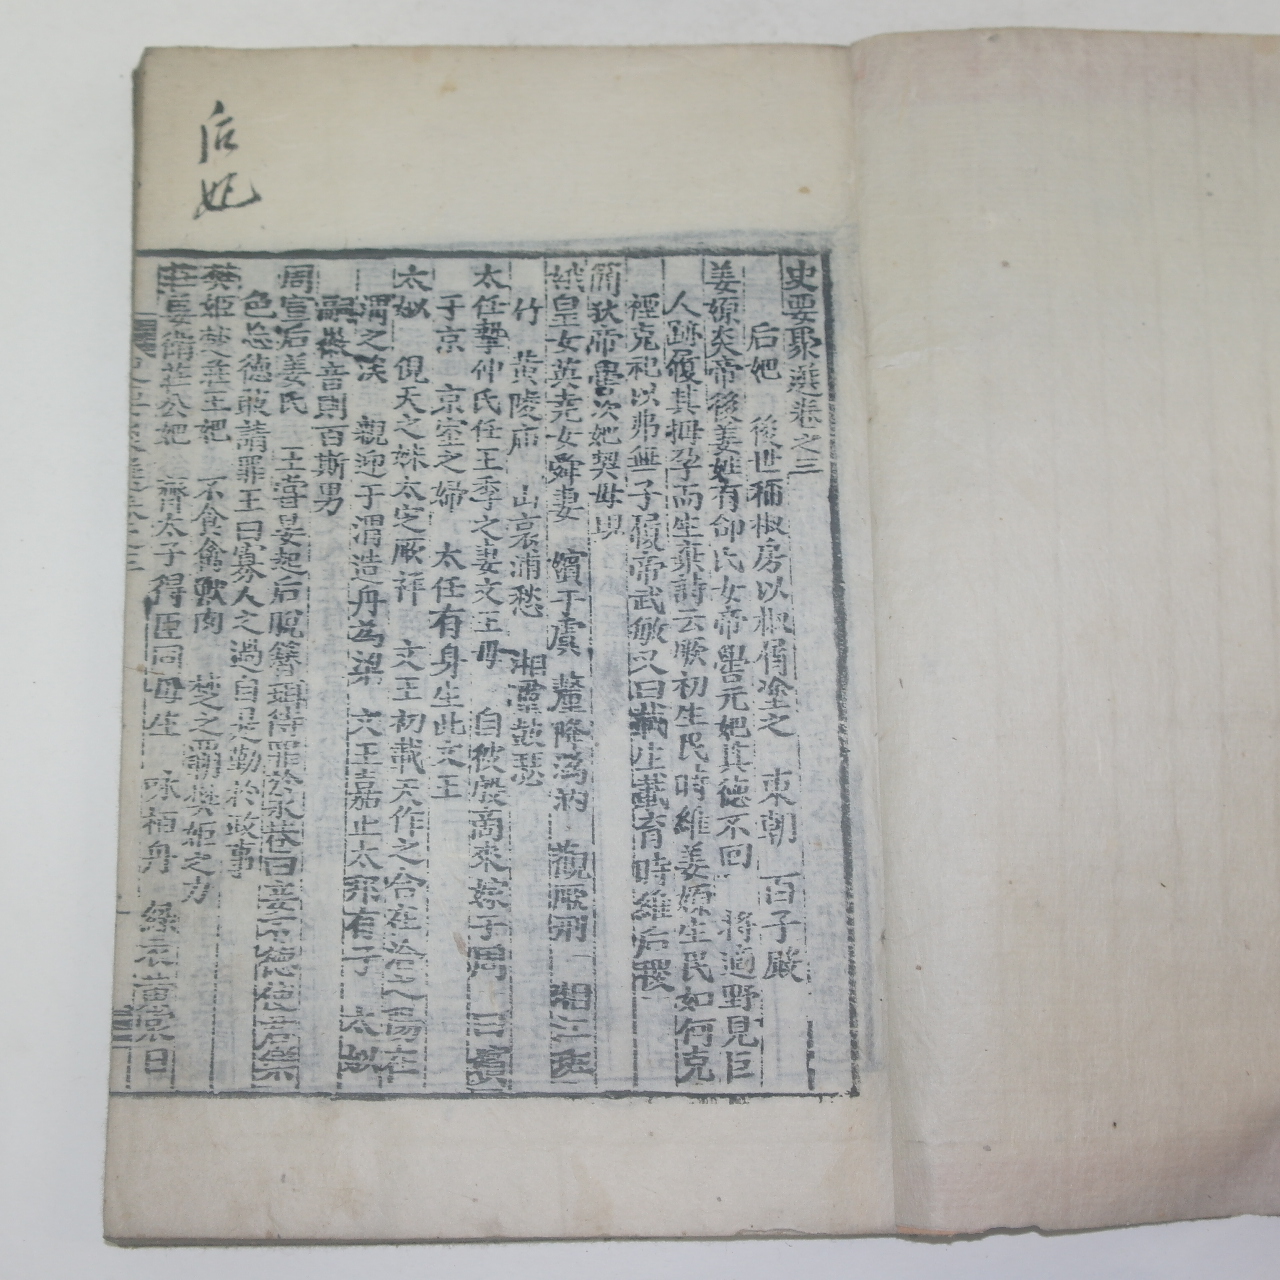 后妃
史要聚選卷之三
后妃 後世稱椒房以椒屑塗之 東朝 百子嚴
姜嫄炎帝後姜姓有邰氏女帝嚳元妃其德不回 將適野見巨
人跡履其拇孕而生棄詩云厥初生民時維姜嫄生民如何克
禋克祀以弗無子履帝武敏又曰載生載育時維后稷
簡狄帝嚳次妃契母
娥皇女英堯女舜妻 嬪于虞 釐降溈汭 觀厥刑 湘江班
竹 黃陵庙 山哀浦愁 湘靈鼓瑟
太任摯仲氏任王季之妻文王母 自彼殷商來嫁于周 曰嬪
于京 京室之婦 太任有身生此文王
太姒 俔天之妹太定厥祥 文王初載天作之合在洽之陽在
渭之涘 親迎于渭造舟爲梁 文王嘉止大邦有子 太姒
嗣徽音則百斯男
周宣后姜氏 王嘗晏起后脫簪珥待罪於永巷曰妾不德使君
色忘德敢請罪王曰寡人之過自是勤於政事
樊姬楚莊王妃 不食禽獸肉 楚之霸樊姬之力
莊姜衛莊公妃 齊太子得臣同母生 咏柏舟 綠衣黃裳